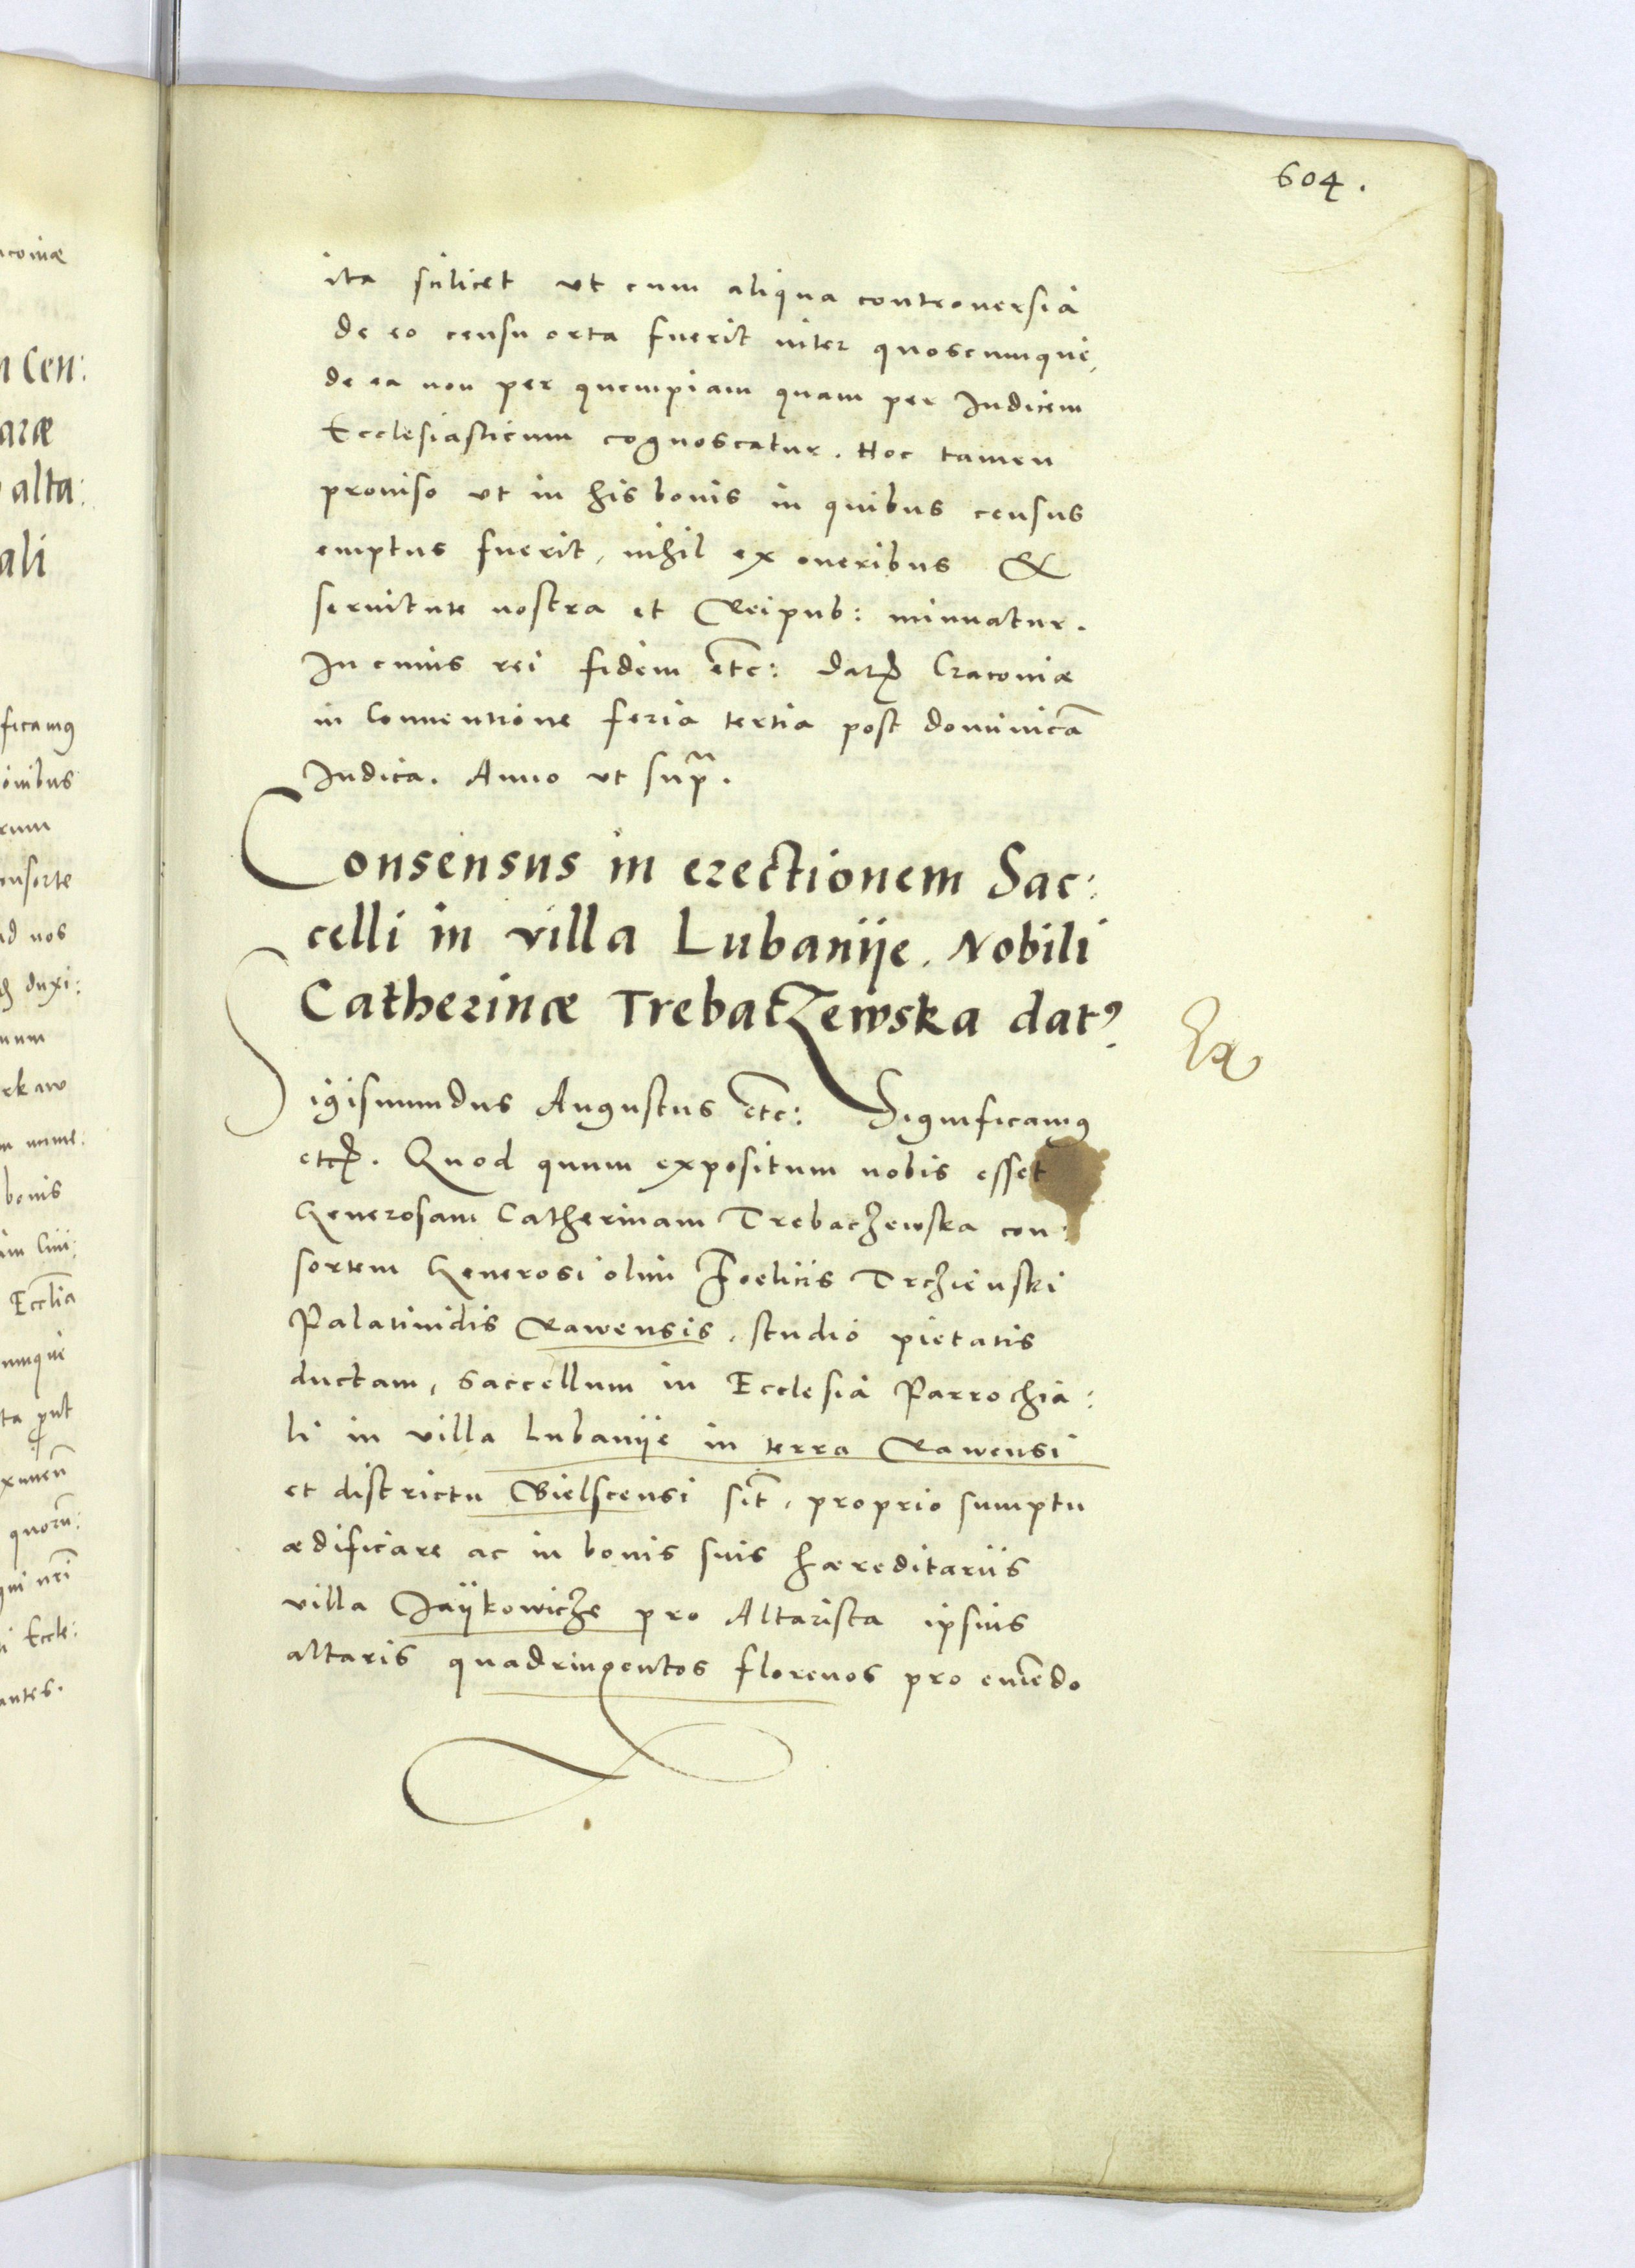 604.
ita scilicet vt cum aliqua controuersia
de eo censu orta fuerit inter quoscumque,
de ea non per quempiam quam per Iudicem
Ecclesiasticum cognoscatur. Hoc tamen
prouiso vt in his bonis in quibus census
emptus fuerit, nihil ex oneribus &
seruitute nostra et Reipub: minuatur.
In cuius rei fidem etc: Dat Cracouiæ
in Conuentione feria tertia post dominicā
Iudica. Anno vt sup.
Consensus in erectionem Sac:
celli in villa Lubanije, Nobili
Catherinæ Trebaczewska dat
Sigismundus Augustus etc: Significamus
etc. Quod quum expositum nobis esset
Generosam Catherinam Trebaczewska con:
sortem Generosi olim Foelicis Trczienski
Palatinidis Rawensis, studio pietatis
ductam, saccellum in Ecclesia Parrochia:
li in villa Lubanije in terra Rawensi
et districtu Bielscensi sit, proprio sumptu
ædificare ac in bonis suis hæreditariis
villa Jaÿkowicze pro Altarista ipsius
altaris quadringentos florenos pro emēdo
aconiæ
n Cen:
aræ
alta:
ali
ficamus
onibus
rum
onsorte
ad nos
duxi:
num
rkaw
m nume:
bonis
Ecclia
umque
ta prout
quorū:
qui nrī
i Eccle:
antes.